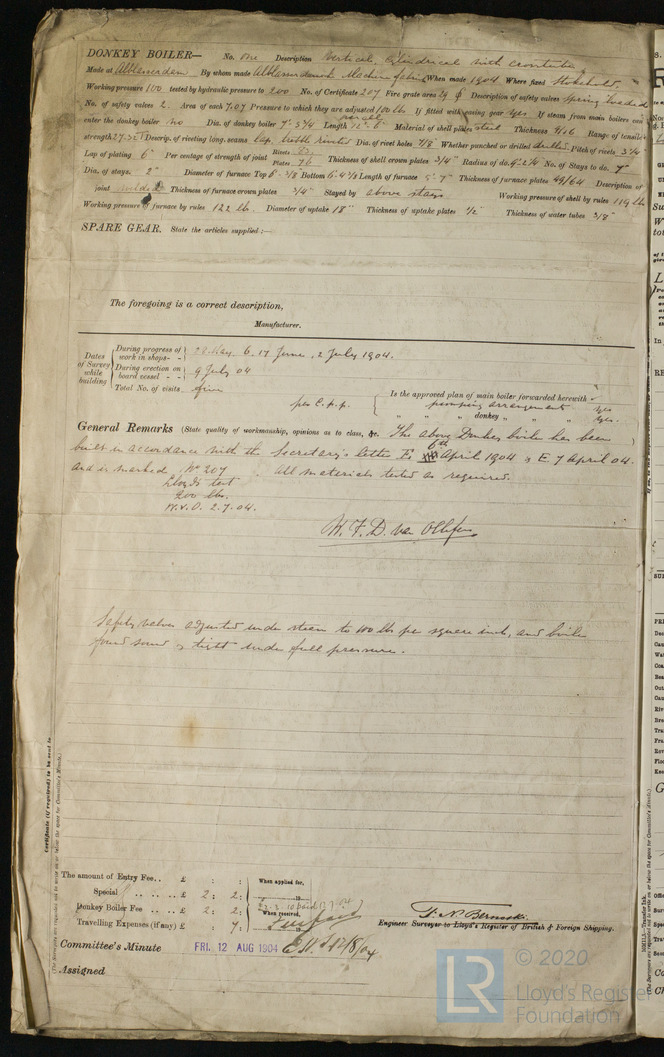 DONKEY BOILER— No. One Description Vertical, Cylindrical with crosstubes
Made at Alblasserdam By whom made Alblasserdamsch Machinefabriek When made 1904 Where fixed Stokehold
Working pressure 100 tested by hydraulic pressure to 200 No. of Certificate 207 Fire grate area 29 Description of safety valves Spring loaded
No. of safety valves 2. Area of each 7.07 Pressure to which they are adjusted 100 lb If fitted with easing gear yes If steam from main boilers can
enter the donkey boiler no Dia. of donkey boiler 7'- 3¼ Length 12'- 6" Material of shell plates steel Thickness 9/16 Range of tensile
strength 27-32 T Descrip. of riveting long. seams lap, treble riveted Dia. of rivet holes 7/8 Whether punched or drilled drilled Pitch of rivets 3¼
Lap of plating 6" Per centage of strength of joint Rivets Plates 76 Thickness of shell crown plates 3/4" Radius of do. No. of Stays to do. 7
Dia. of stays. 2" Diameter of furnace Top Bottom Length of furnace Thickness of furnace plates 49/64 Description of
joint welded Thickness of furnace crown plates 3/4" Stayed by above stays Working pressure of shell by rules 119 lb
Working pressure of furnace by rules 122 lb. Diameter of uptake 18" Thickness of uptake plates 1/2" Thickness of water tubes 3/8"
SPARE GEAR. State the articles supplied:—
The foregoing is a correct description,
Manufacturer.
Dates of Survey while building
During progress of work in shops - - 28 May, 6, 17 June, 2 July 1904.
During erection on board vessel - - 9 July 04
Total No. of visits five
Is the approved plan of main boiler forwarded herewith
per C.p.p. pumping arrangement yes
" " " donkey " " " yes.
General Remarks (State quality of workmanship, opinions as to class, &c. The above Donkey boiler has been
built in accordance with the Secretary's letter E. 6th April 1904 & E. 7 April 04.
and is marked No 207 . All materials tested as required.
Lloyd's test
200 lbs.
W.v.O. 2.7.04.
W. F. D. van Ollefen
Safety valves adjusted under steam to 100 lbs per square inch, and boiler
found sound & tight under full pressure.
Certificate (if required) to be sent to
(The Surveyors are requested not to write on or below the space for Committee's Minute.)
The amount of Entry Fee .. £ : :
Special .. .. .. £ 2 : 2 :
Donkey Boiler Fee .. .. £ 2 : 2 :
Travelling Expenses (if any) £ : 7 :
When applied for,
When received,
Engineer Surveyor to Lloyd's Register of British & Foreign Shipping.
Committee's Minute FRI. 12 AUG 1904
Assigned
© 2020
LR
Lloyd's Register
Foundation